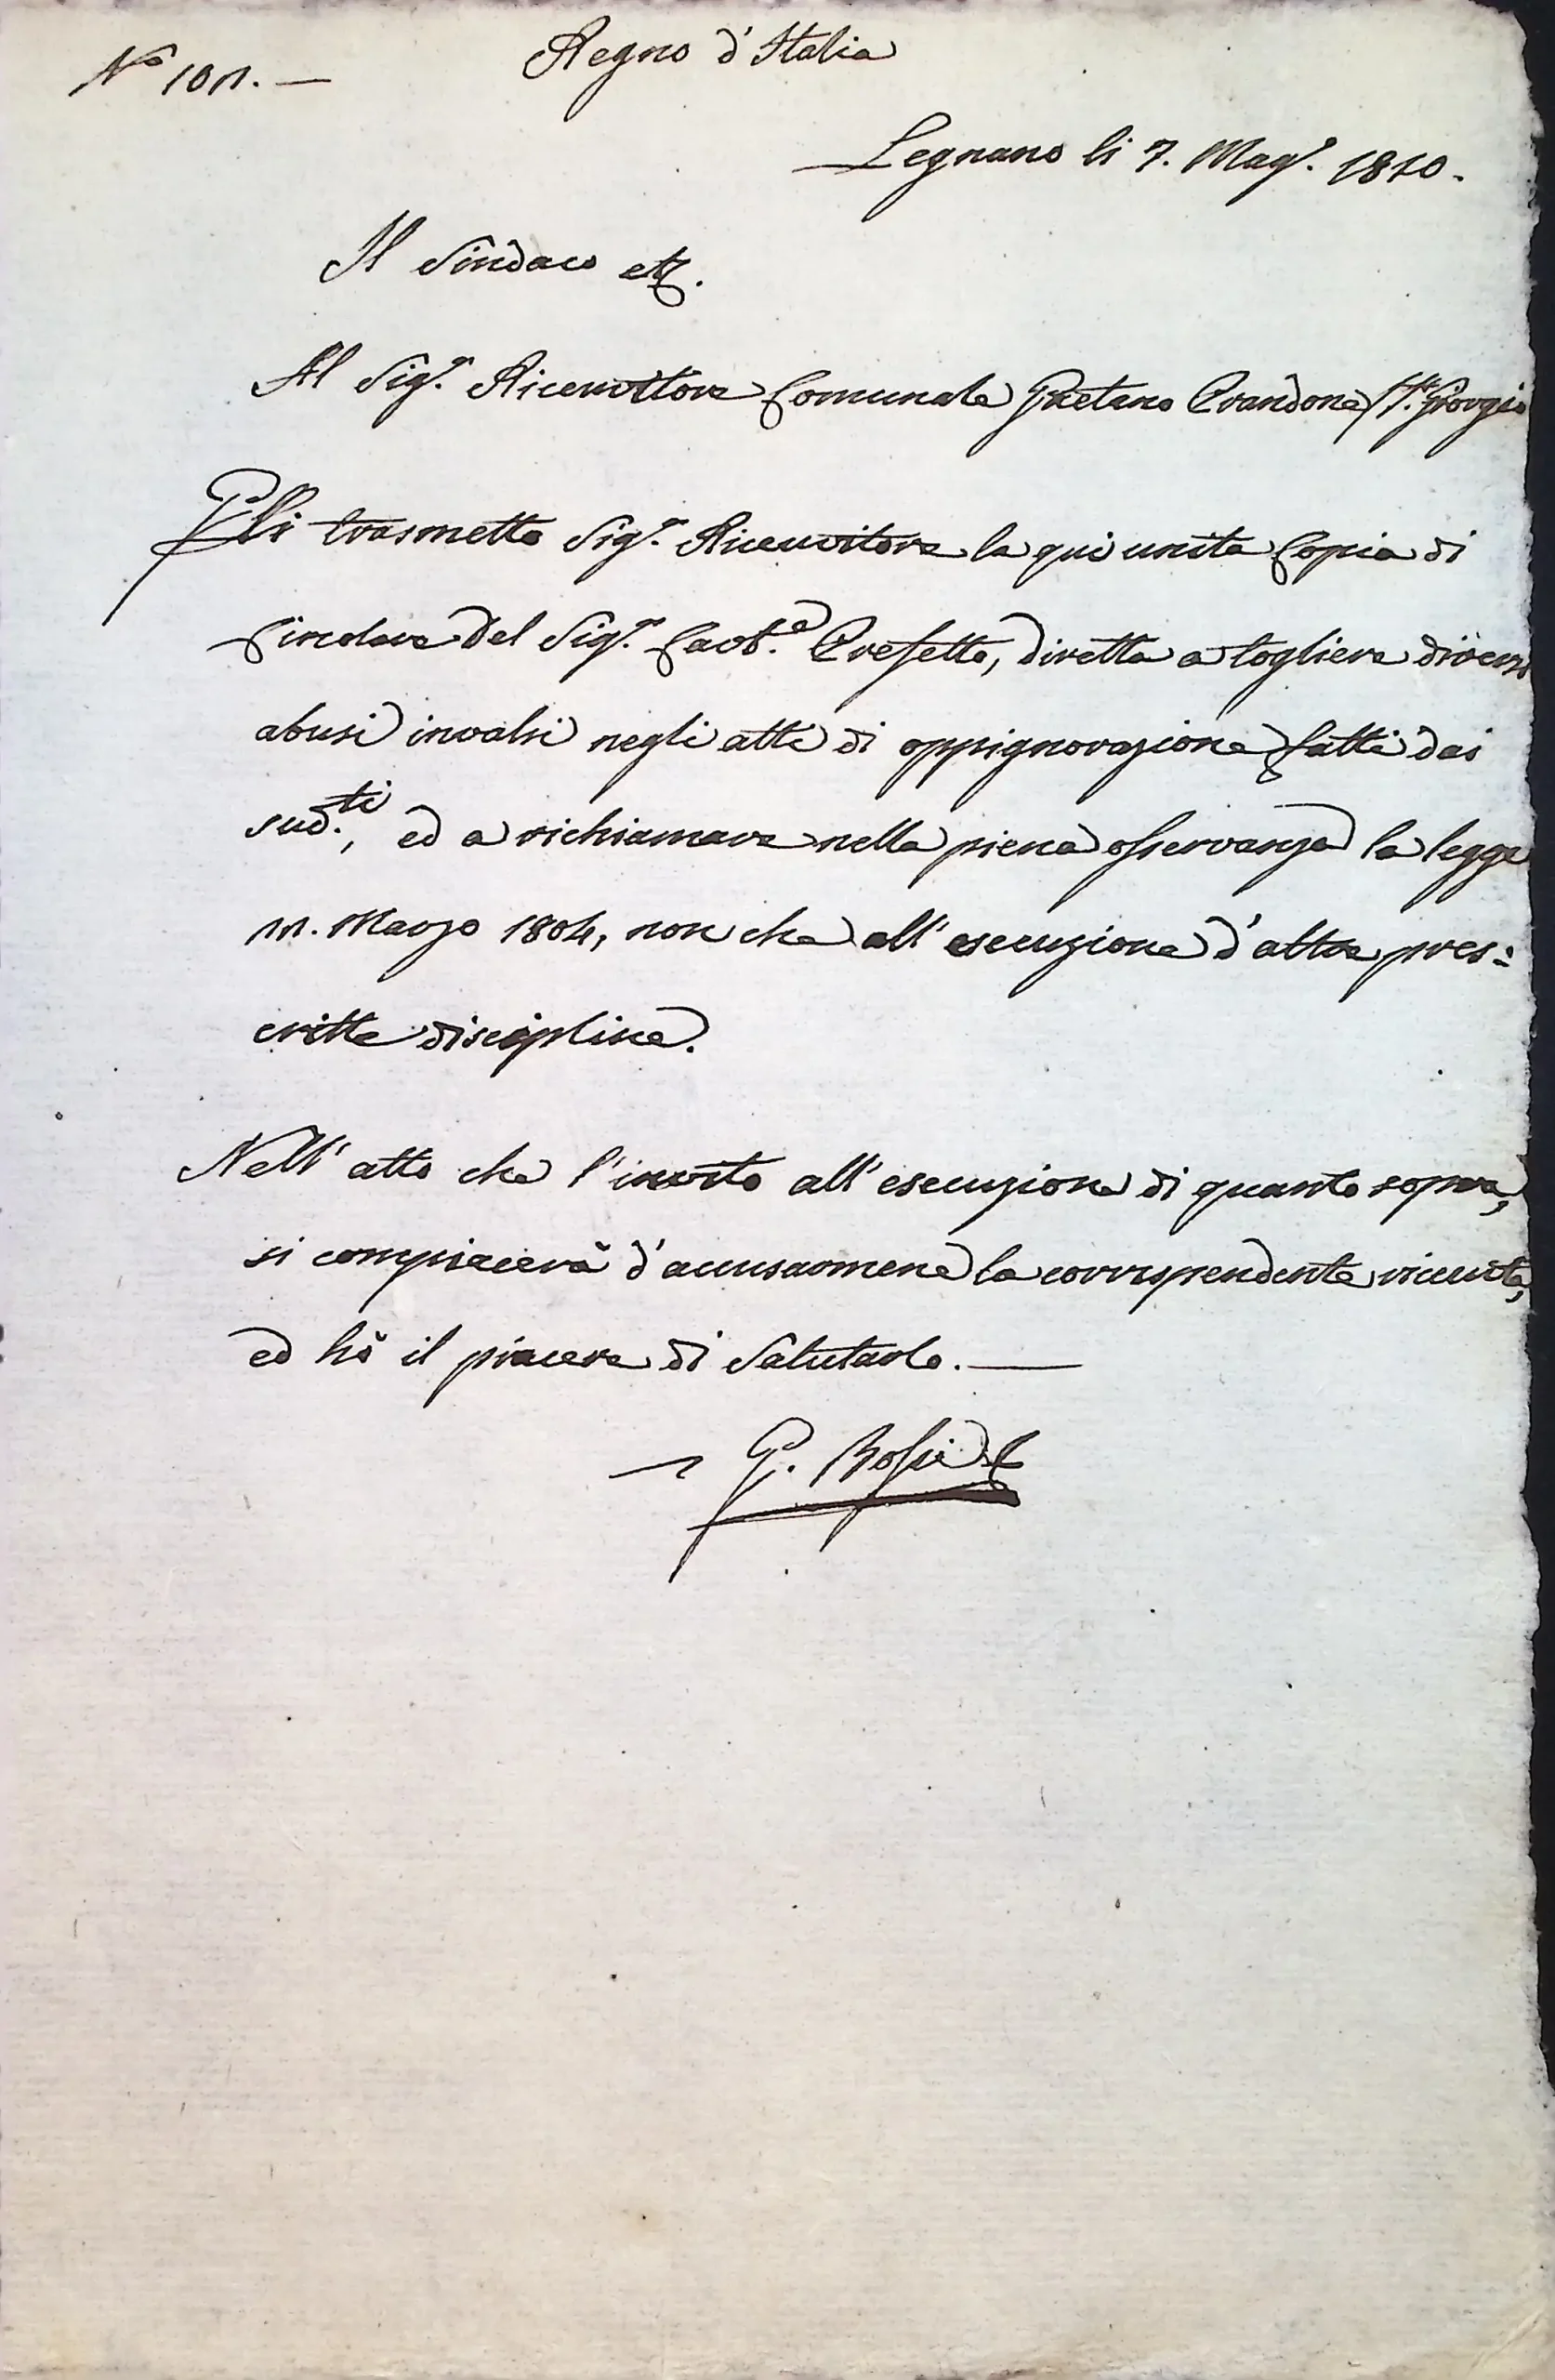 N.° 101. —
Regno d'Italia
Legnano li 7. Mag.° 1810.
Il Sindaco etc.
Al Sig.r Ricevittore Comunale Gaetano Prandone S. Giorgio
Gli trasmetto Sig.r Ricevvitore la qui unita Copia di
Circolare del Sig.r Cavb.e Prefetto, diretta a togliere diversi
abusi invalsi negli atti di oppignorazione fatti dai
sud.ti, ed a richiamare nella piena osservanza la legge
Marzo 1804, non che all'esecuzione d'altre pres:
critte discipline.
Nell'atto che l'invito all'esecuzione di quanto sopra,
si compiacerà d'accusarmene la corrispendente ricevuta,
ed hò il piacere di Salutarlo. —
G. Rossi